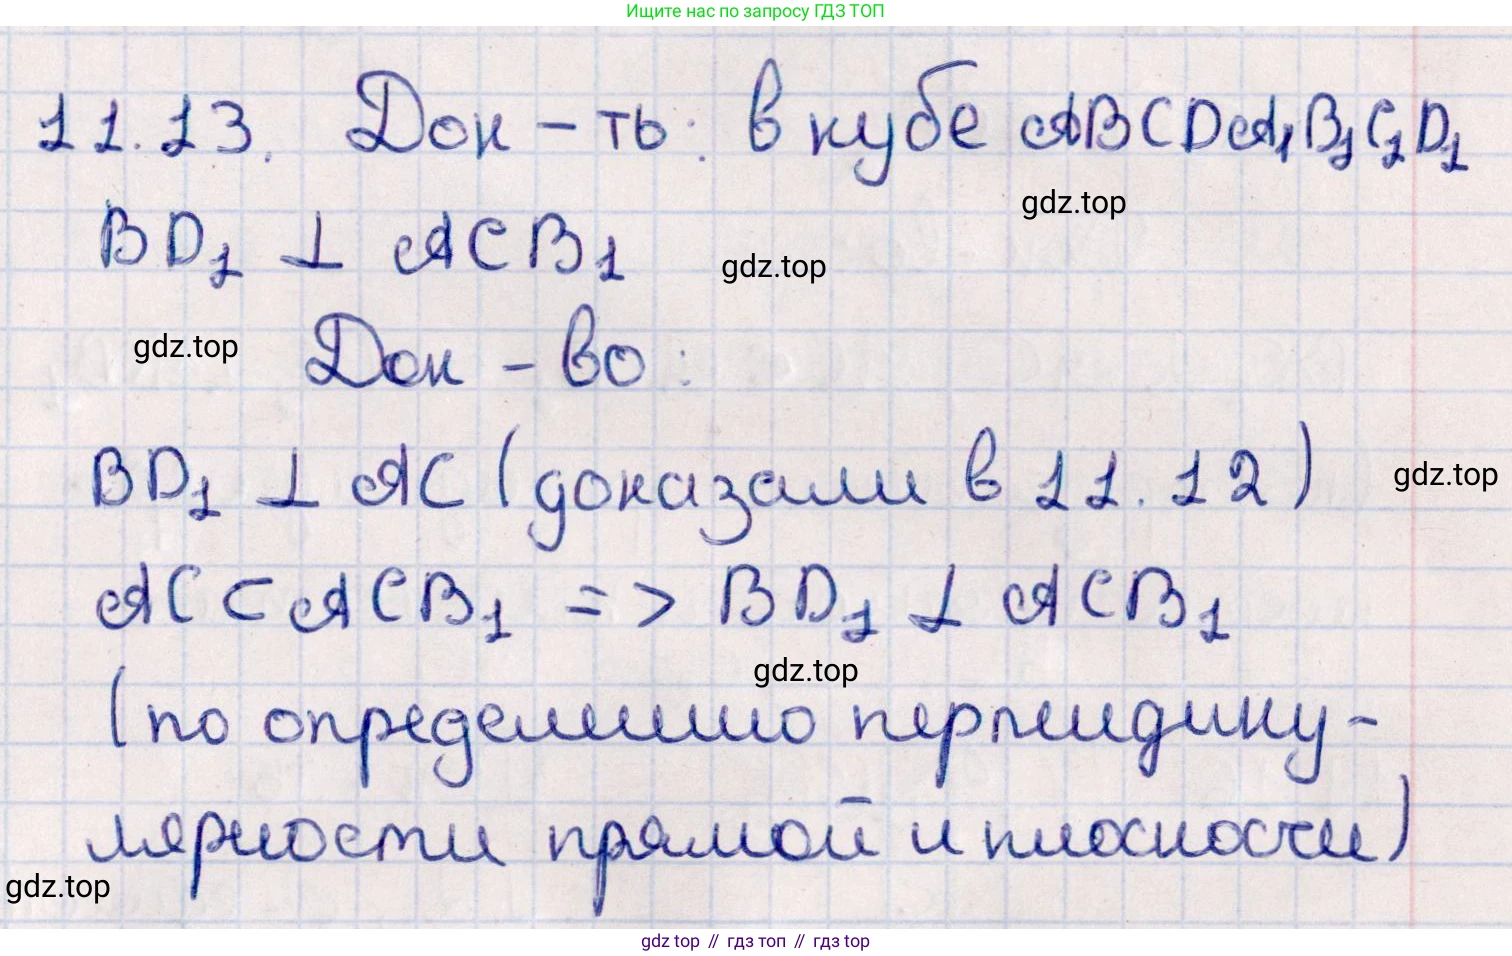 Ищите нас по запросу ГДЗ ТОП
11.13. Док-ть: в кубе ABCDA₁B₁C₁D₁
gdz.top
BD₁ ⊥ ACB₁
gdz.top
gdz.top
Док-во:
BD₁ ⊥ AC (доказали в 11.12)
gdz.top
AC ⊂ ACB₁ => BD₁ ⊥ ACB₁
gdz.top
(по определению перпендику-
лярности прямой и плоскости)
gdz.top
gdz top // гдз топ // гдз top